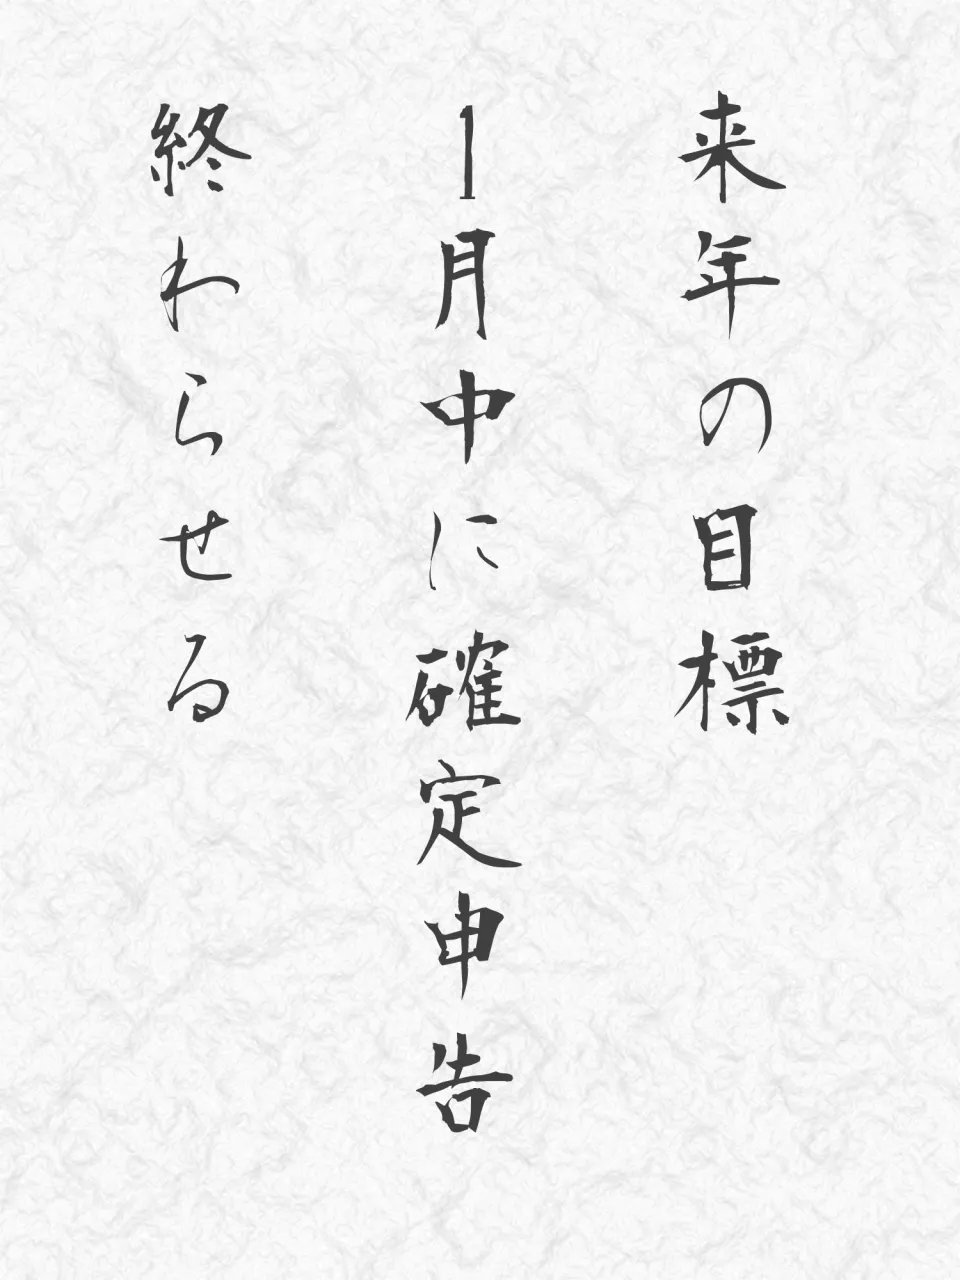 来年の目標
1月中に確定申告
終わらせる